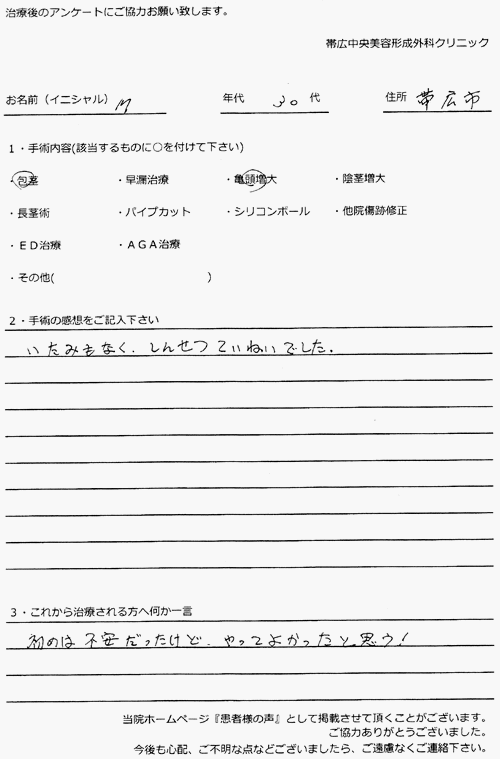 治療後のアンケートにご協力お願い致します。
帯広中央美容形成外科クリニック
お名前（イニシャル） M 年代 30 代 住所 帯広市
１・手術内容(該当するものに○を付けて下さい)
・包茎 ・早漏治療 ・亀頭増大 ・陰茎増大
・長茎術 ・パイプカット ・シリコンボール ・他院傷跡修正
・ＥＤ治療 ・ＡＧＡ治療
・その他( )
２・手術の感想をご記入下さい
いたみもなく、しんせつていねいでした。
３・これから治療される方へ何か一言
初めは不安だったけど、やってよかったと思う！
当院ホームページ『患者様の声』として掲載させて頂くことがございます。
ご協力ありがとうございました。
今後も心配、ご不明な点などございましたら、ご遠慮なくご連絡下さい。